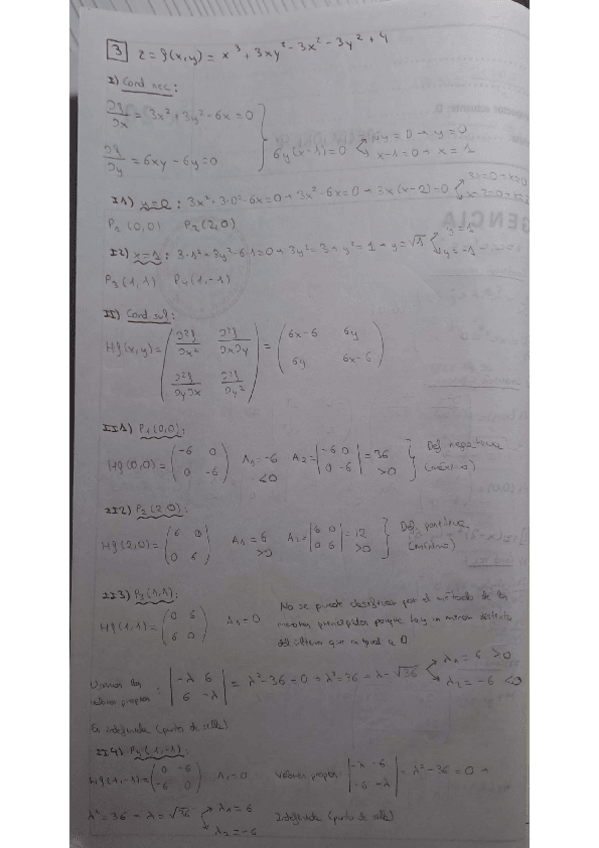 3 z = f(x,y) = x³ + 3xy² - 3x² - 3y² + 4
I) Cond nec:
∂f/∂x = 3x² + 3y² - 6x = 0
∂f/∂y = 6xy - 6y = 0 } 6y(x-1) = 0 < 6y = 0 → y = 0
x-1 = 0 → x = 1
I1) y=0: 3x² + 3·0² - 6x = 0 → 3x² - 6x = 0 → 3x(x-2) = 0 < 3x=0→x=0
x-2=0→x=2
P₁(0,0) P₂(2,0)
I2) x=1: 3·1² + 3y² - 6·1 = 0 → 3y² = 3 → y² = 1 → y = √1 < y = 1
y = -1
P₃(1,1) P₄(1,-1)
II) Cond suf:
Hf(x,y) = (∂²f/∂x² ∂²f/∂x∂y
∂²f/∂y∂x ∂²f/∂y²) = (6x-6 6y
6y 6x-6)
II1) P₁(0,0):
Hf(0,0) = (-6 0
0 -6) A₁ = -6 <0 A₂ = |-6 0
0 -6| = 36 >0 } Def negativa
(máximo)
II2) P₂(2,0):
Hf(2,0) = (6 0
0 6) A₁ = 6 >0 A₂ = |6 0
0 6| = 12 >0 } Def positiva
(mínimo)
II3) P₃(1,1):
Hf(1,1) = (0 6
6 0) A₁ = 0 No se puede clasificar por el método de los
menores principales porque hay un menor distinto
del último que es igual a 0
valores propios: |-λ 6
6 -λ| = λ² - 36 = 0 → λ² = 36 = λ = √36 < λ₁ = 6 >0
λ₂ = -6 <0
Es indefinida (punto de silla)
II4) P₄(1,-1):
Hf(1,-1) = (0 -6
-6 0) A₁ = 0 Valores propios: |-λ -6
-6 -λ| = λ² - 36 = 0 →
λ² = 36 → λ = √36 < λ₁ = 6
λ₂ = -6 Indefinida (punto de silla)